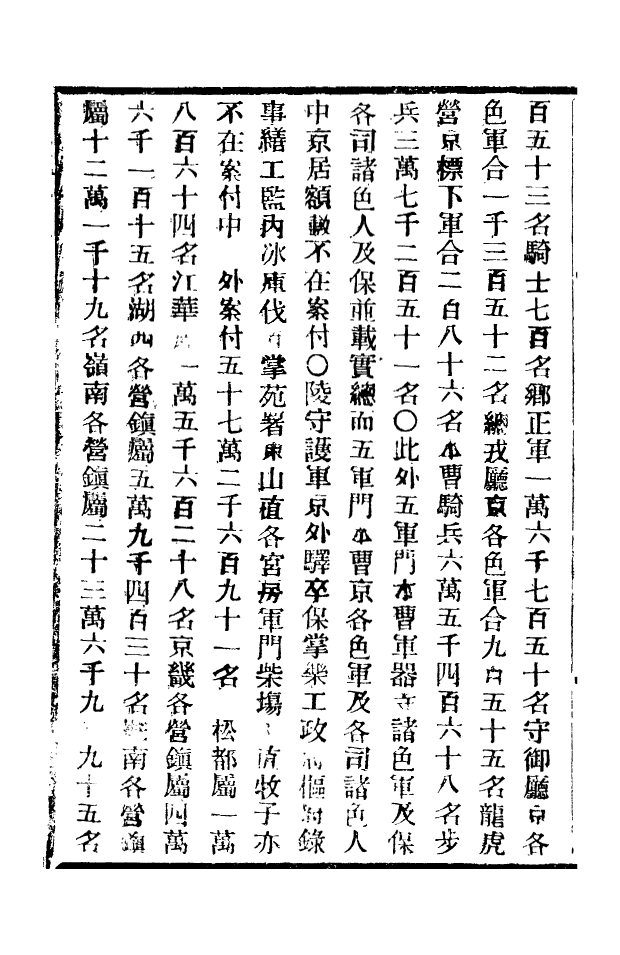 百五十三名騎士七百名鄕正軍一萬六千七百五十名守御廳京各
色軍合一千三百五十二名總戎廳京各色軍合九百五十五名龍虎
營京標下軍合二百八十六名本曹騎兵六萬五千四百六十八名步
兵三萬七千二百五十一名○此外五軍門本曹軍器寺諸色軍及保
各司諸色人及保並載實總而五軍門本曹京各色軍及各司諸色人
中京居額數不在案付○陵守護軍京外驛卒保掌樂工政府樞府錄
事繕工監內氷庫伐氷掌苑署東山直各宮房軍門柴場直牧子亦
不在案付中 外案付五十七萬二千六百九十一名 松都屬一萬
八百六十四名江華屬一萬五千六百二十八名京畿各營鎭屬四萬
六千一百十五名湖西各營鎭屬五萬九千四百三十名湖南各營鎭
屬十二萬一千十九名嶺南各營鎭屬二十三萬六千九 九十五名